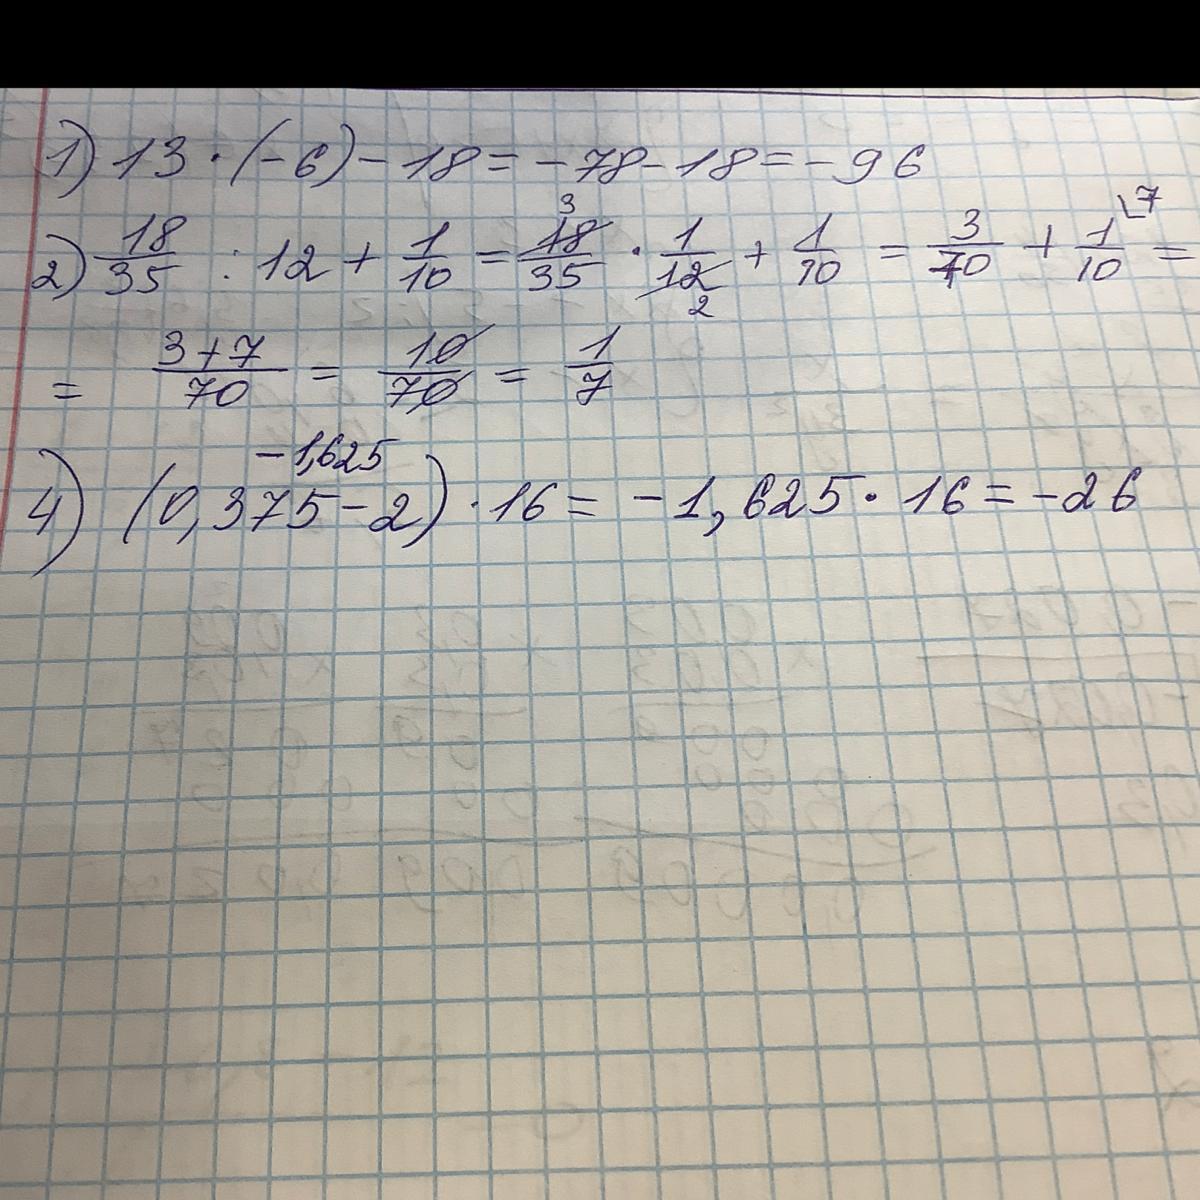 1) 13 · (-6) - 18 = -78 - 18 = -96
2) 18/35 : 12 + 1/10 = 18/35 3 · 1/12 2 + 1/10 = 3/70 + 1/10 ⌊7 =
= 3+7/70 = 10/70 = 1/7
-1,625
4) (0,375 - 2) · 16 = -1,625 · 16 = -26